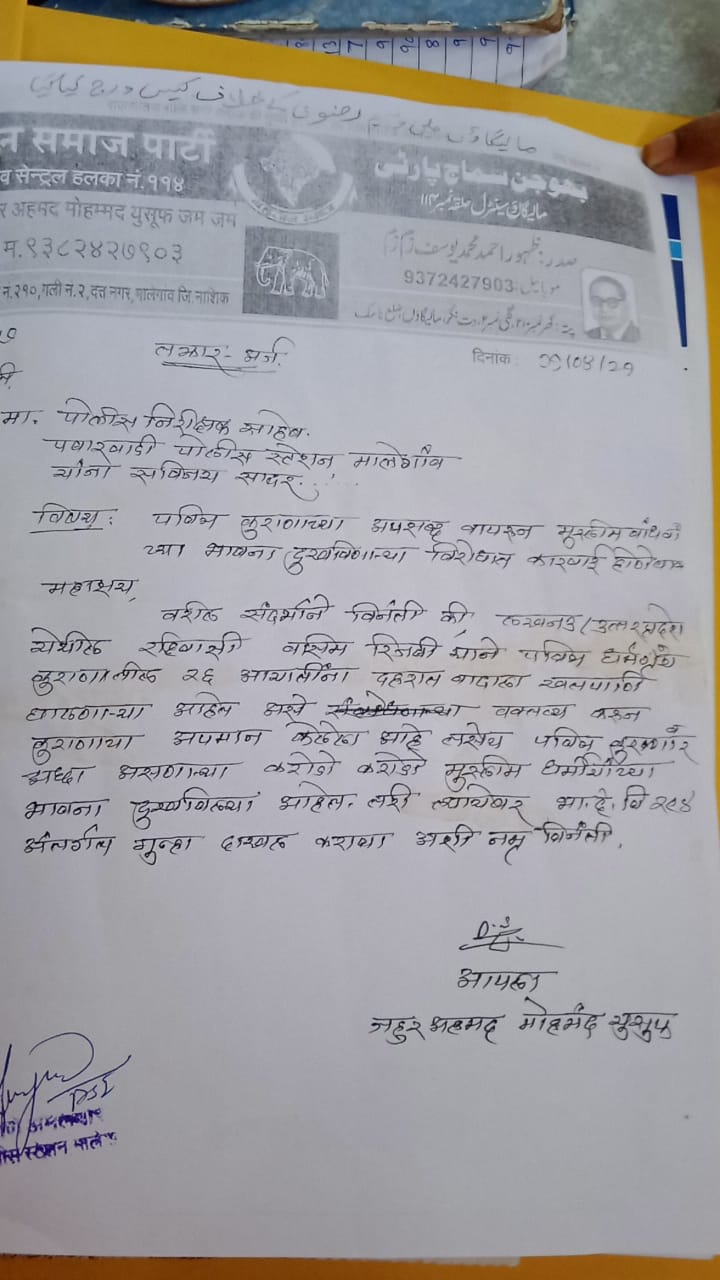 مالیگاؤں میں وسیم رضوی کے خلاف کیس درج کیا گیا
न समाज पार्टी
व सेन्ट्रल हलका नं. ११४
र अहमद मोहम्मद युसूफ जम जम
म.९३८२४२७९०३
नं.२१०, गली नं.२, दत्त नगर, मालेगांव जि. नाशिक
بهوجن سماج پارٹی
مالیگاؤں سینٹرل حلقہ نمبر ۱۱۴
صدر: ظہور احمد محمد یوسف زم زم
موبائل: 9372427903
तक्रार-अर्ज
दिनांक:
मा. पोलीस निरीक्षक साहेब.
पवारवाडी पोलीस स्टेशन मालेगाँव
यांना सविनय सादर....
विषय: पवित्र कुराणाच्या अपशब्द वापरून मुस्लीम बांधवां
च्या भावना दुखविणाऱ्या विरोधात कारवाई होणेबाबत
महाशय,
वरील संदर्भाने विनंती की, लखनऊ (उत्तरप्रदेश
येथील रहिवासी वसिम रिजवी याने पवित्र धर्मग्रंथ
कुराणातील २६ आयातींना दहशतवादाला खतपाणी
घालणाऱ्या आहेत असे वक्तव्य करून
कुराणाचा अपमान केलेला आहे तसेच पवित्र कुराणावर
श्रध्दा असणाऱ्या करोडो करोडो मुस्लीम धर्मीयांच्या
भावना दुखविल्या आहेत. तरी त्याचेवर भा.दं.वि २९५
अंतर्गत गुन्हा दाखल करावा अशी नम्र विनंती.
आपला
जहुर अहमद मोहमंद युसुफ